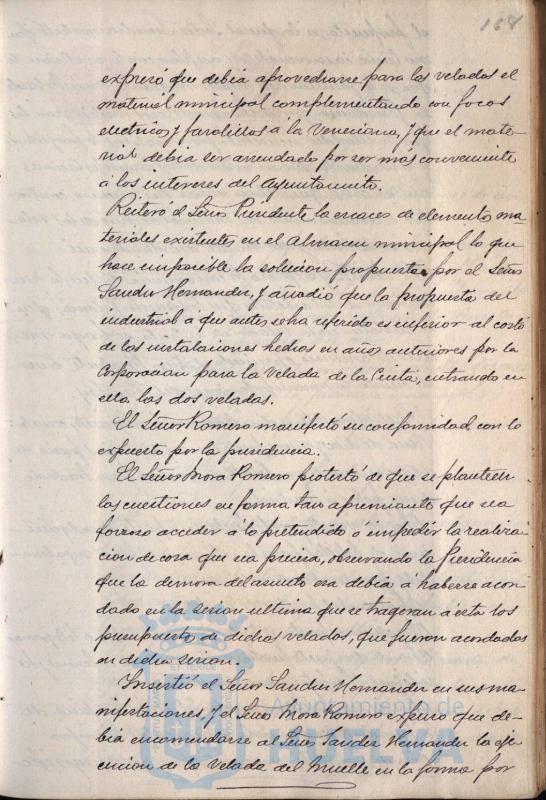 168
expresó que debia aprovecharse para las veladas el
material municipal complementando con focos
electricos y farolillos á la Veneciana, y que el mate-
rial debia ser arrendado por ser mas conveniente
a los intereses del Ayuntamiento.
Reiteró el Señor Presidente la escases de elementos ma-
teriales existentes en el Almacen municipal lo que
hace imposible la solucion propuesta por el Señor
Sanchez Hernandez, y añadió que la propuesta del
industrial á que antes se ha referido es inferior al costo
de las instalaciones hechas en años anteriores por la
Corporacion para la Velada de la Cinta, entrando en
ella las dos veladas.
El Señor Romero manifestó su conformidad con lo
expuesto por la presidencia.
El Señor Mora Romero protestó de que se planteen
las cuestiones en forma tan apremiante que sea
forzoso acceder á lo pretendido ó impedir la realiza-
cion de cosa que sea precisa, observando la Presidencia
que la demora del asunto era debia á haberse acor-
dado en la sesion ultima que se trageran á esta los
presupuestos de dichas veladas, que fueron acordadas
en dicha sesion.
Insertió el Señor Sanchez Hernandez en sus ma-
nifestaciones y el Señor Mora Romero expuso que de-
bia encomendarse al Señor Sanchez Hernandez la eje-
cucion de la Velada del Muelle en la forma por
Ayuntamiento de
HUELVA